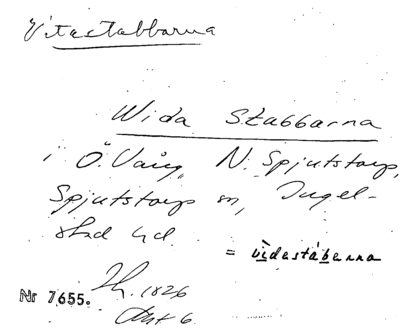 Vitastabbarna
Wida Stabbarna
i Ö. Vång, N. Spjutstorp,
Spjutstorps sn, Ingel-
stad hd.
= vìdastábarna
Nr 7655.
Lh. 1826
Akt 6